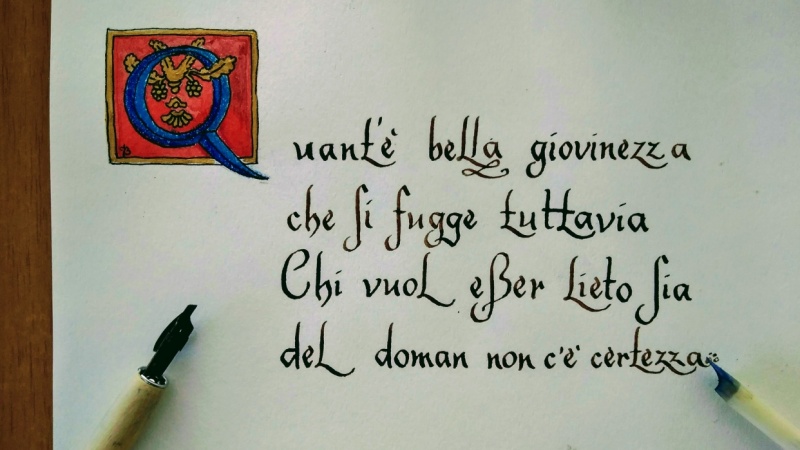 Quant'è bella giovinezza
che ſi fugge tuttavia
Chi vuol eßer lieto ſia
del doman non c'è certezza